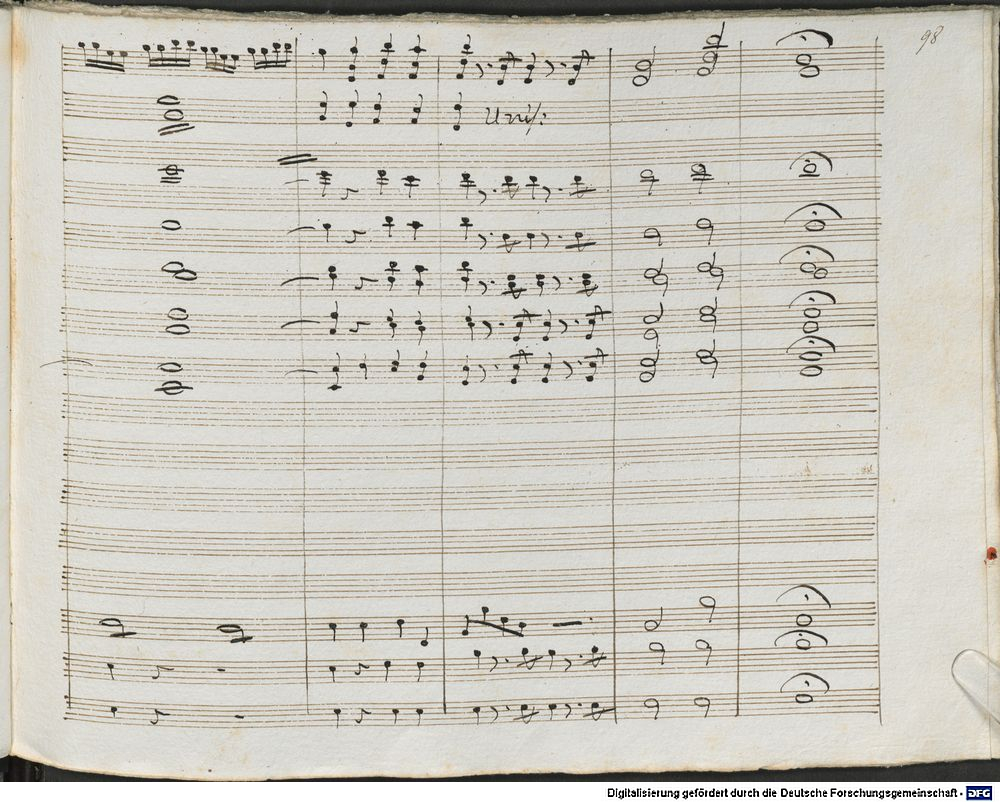 98
Unis:
Digitalisierung gefördert durch die Deutsche Forschungsgemeinschaft - DFG